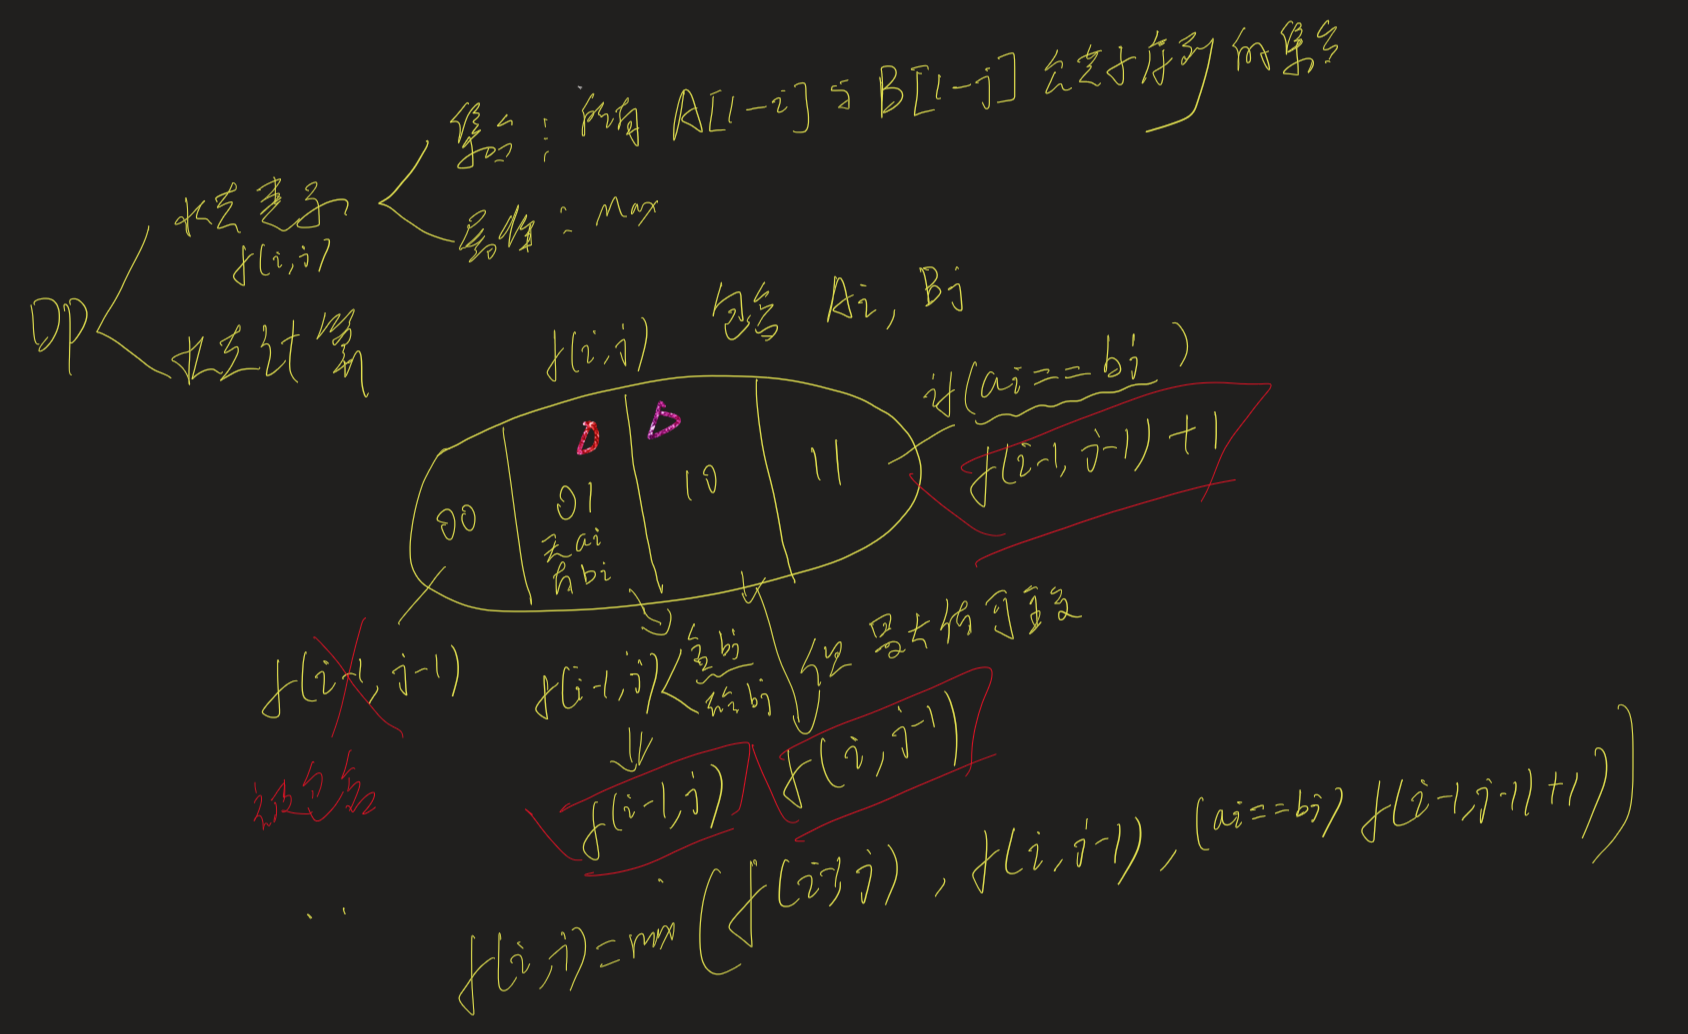 集合：所有 A[1-i] 与 B[1-j] 公共子序列的集合
状态表示
f(i,j)
属性：Max
DP
状态计算
包含 Ai, Bj
f(i,j)
if(ai==bj)
f(i-1,j-1)+1
00
01
无ai
有bj
10
11
f(i-1,j-1)
被包含
f(i-1,j)
含bj
不含bj
但最大值可重复
f(i-1,j)
f(i,j-1)
f(i,j)=max(f(i-1,j), f(i,j-1), (ai==bj) f(i-1,j-1)+1)